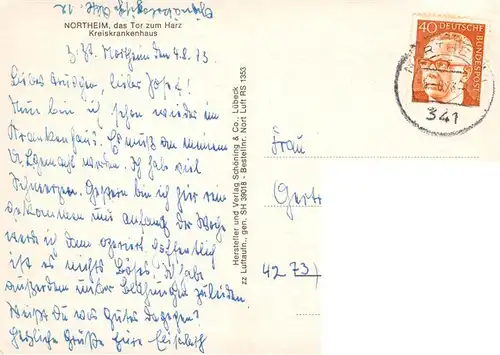 NORTHEIM, das Tor zum Harz
Kreiskrankenhaus
z. Zt. Northeim den 4.8.73
Liebes, lieber Josef!
Nun bin ich schon wieder im
Krankenhaus. Es muß an meinem
gemacht werden. Ich hab viel
Schmerzen. Gestern bin ich hier rein
gekommen und anfang der Woche
werde ich dann operiert hoffentlich
ist es nichts Böses. Ich habe
außerdem unter zu leiden.
Weißt Du was Gutes dagegen?
Herzliche Grüße Eure Elisabeth
Hersteller und Verlag Schöning & Co., Lübeck
zz Luftaufn., gen. SH 39018 - Bestellnr. Nort Luft RS 1353
40
DEUTSCHE BUNDESPOST
341
Frau
Gertr
4273)